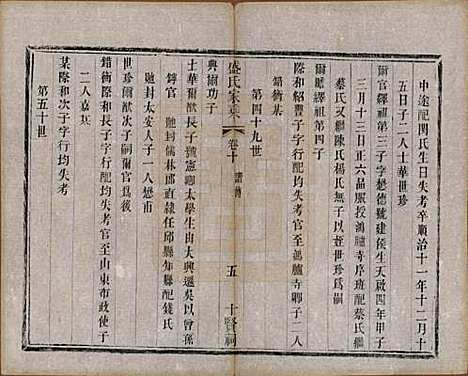 中途配閔氏生日失考卒順治十一年十二月十
五日子二人士華世珍
爾官繹祖第三子字懋德號建侯生天啟四年甲子
三月十三日三十六品服授鴻臚寺序班配蔡氏繼
蔡氏又繼陳氏楊氏無子以姪世珍為嗣
爾 繹祖第四子
際和紹豐子字行配均失考官至鴻臚寺卿子二人
錯衡某
第四十九世
盛氏家乘
卷十 譜
五
十賢祠
興爾功子
士華爾猷長子字憲卿太學生由大興遷吳以曾孫
鍔官 貤封儒林郎直隸任邱縣知縣配錢氏
貤封太安人子一人懋甫
世珍爾猷次子嗣爾官為後
錯衡際和長子字行均失考官至山東布政使子
二人嘉某
某際和次子字行均失考
第五十世